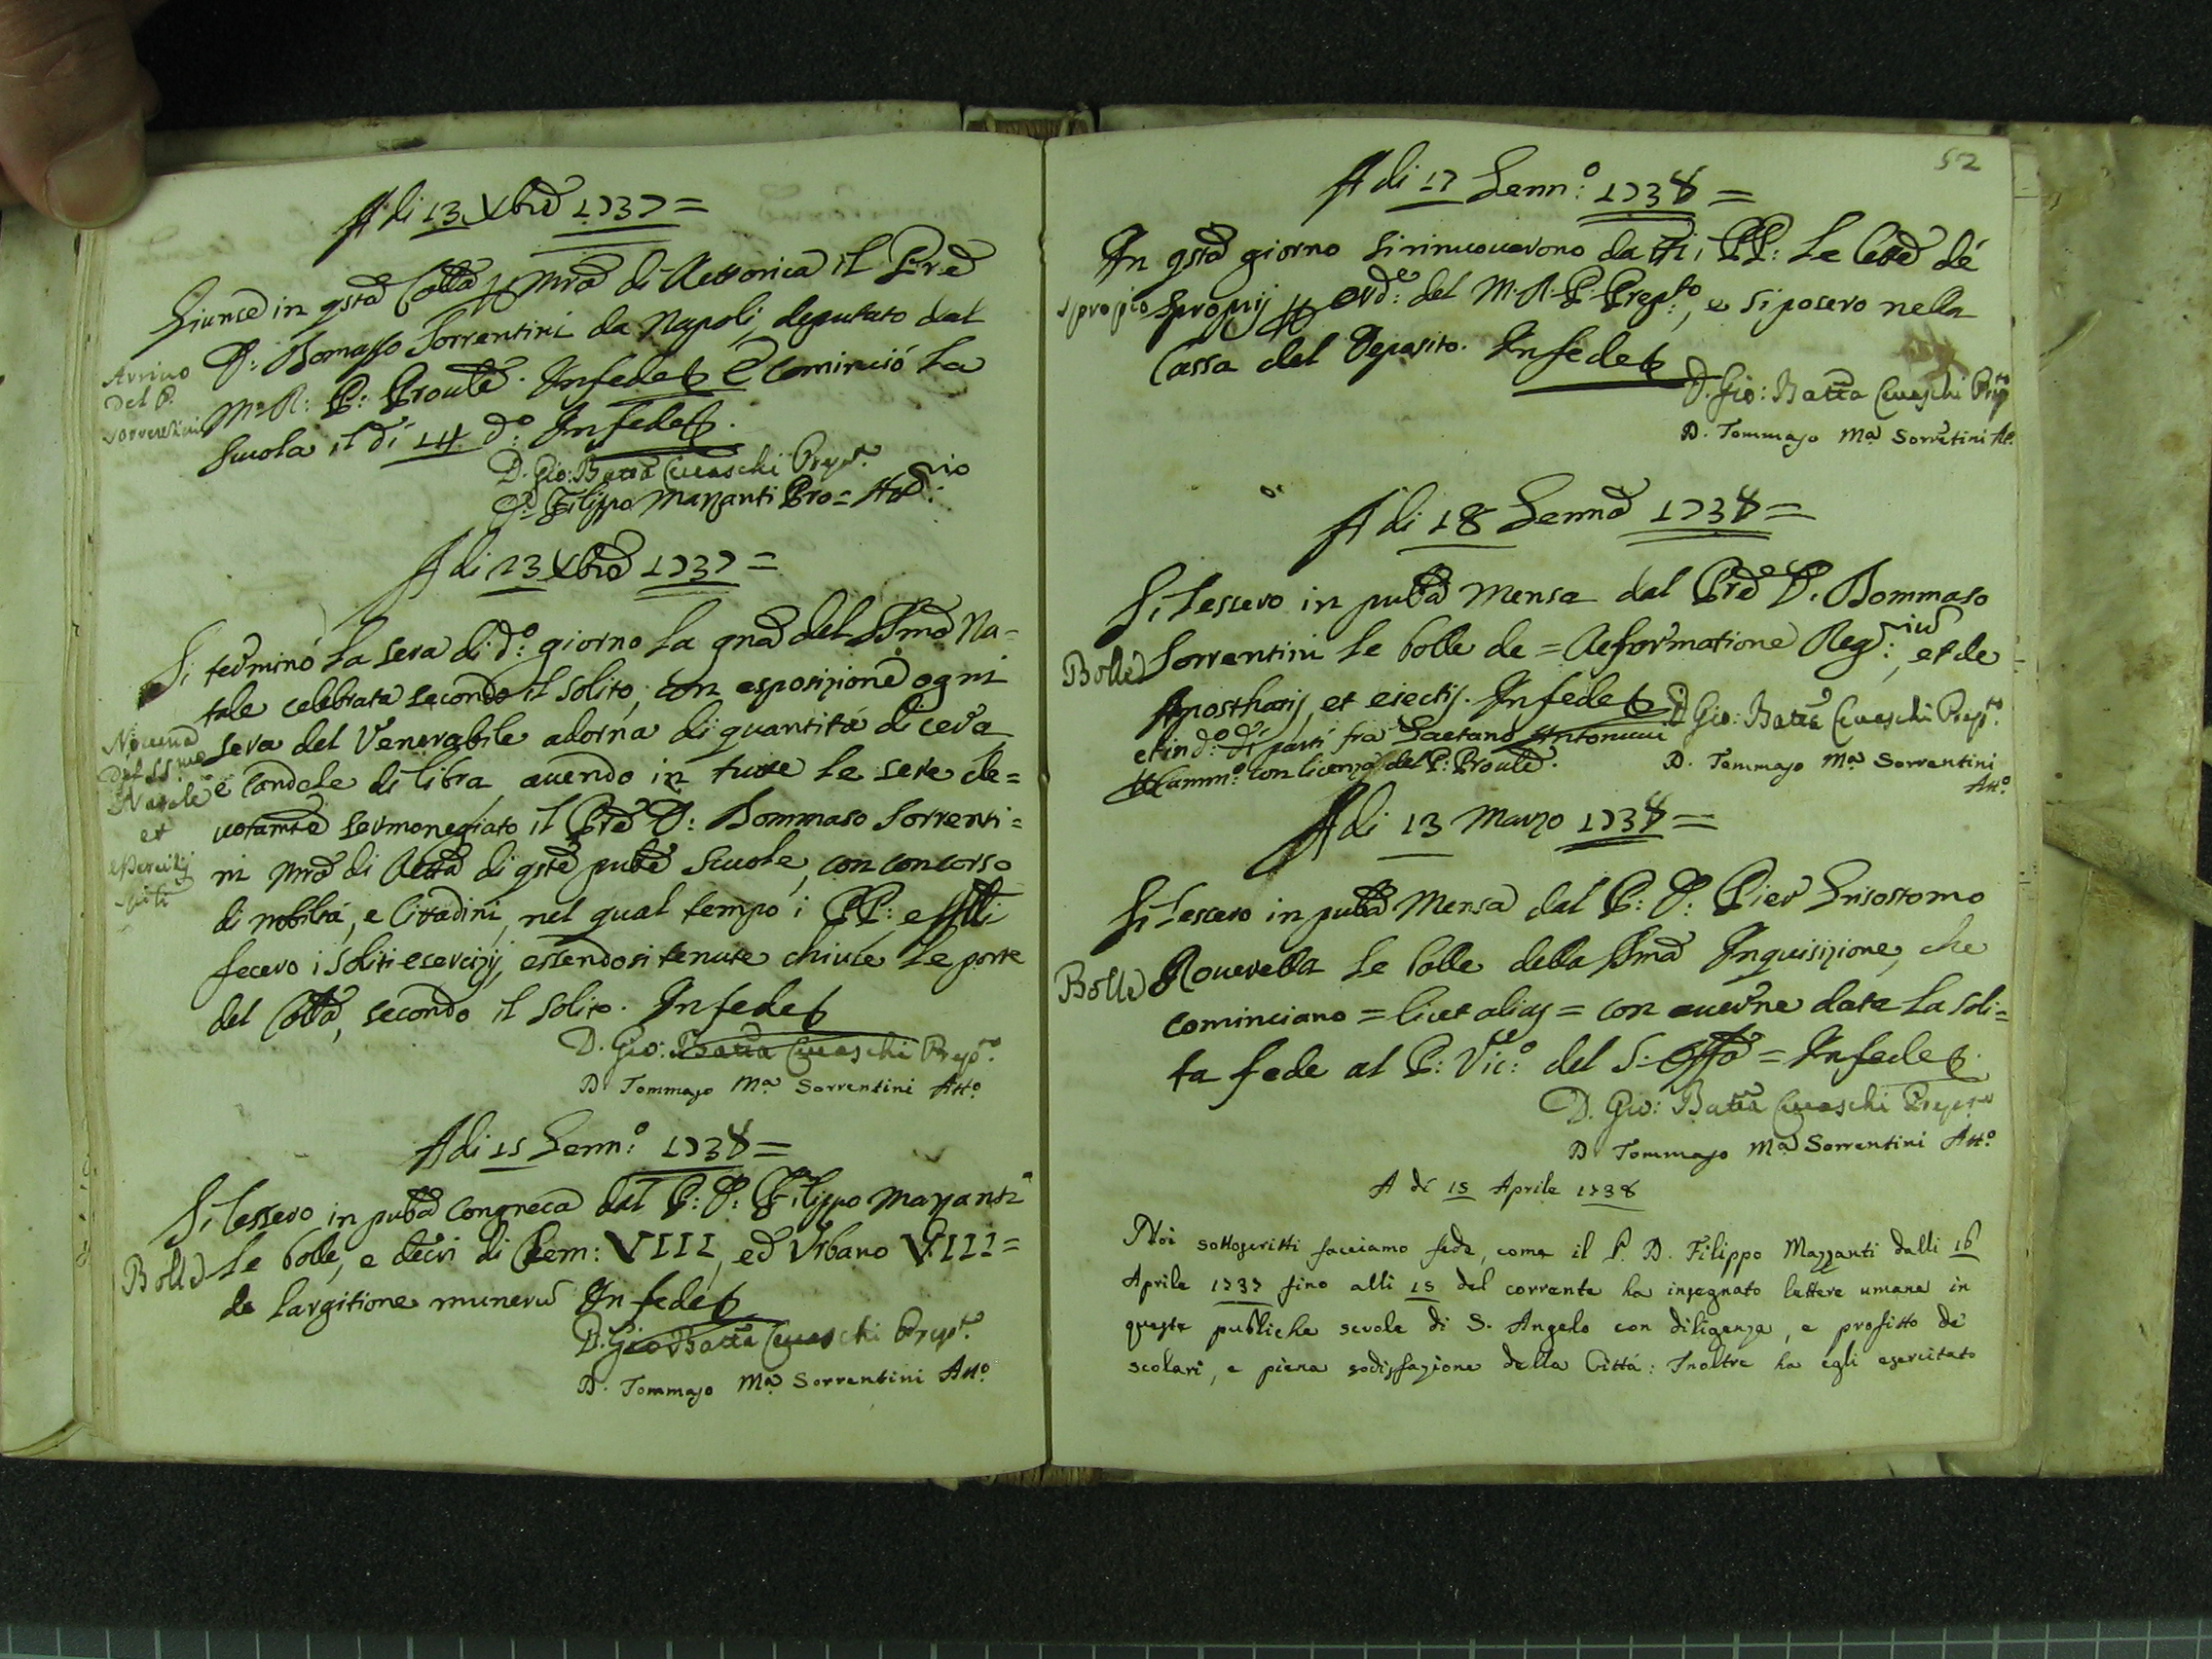 A di 13 Xbre 1737 =
Giunse in qsto Collo p Mro di Rettorica il Pre
D: Tomasso Sorrentini da Napoli, deputato dal
Arrivo
del P.
Sorrentini
M. R: P: Proule. In fede & Cominció la
Scuola il di 14 do: In fede &.
D. Gio: Batta Cevaschi Prepto
D. Filippo Mazzanti Pro = Attrio
A di 23 Xbre 1737 =
Si terminó la sera di do: giorno la gna del SSmo Na=
tale celebrata secondo il solito, con esposizione ogni
Novena
del SSmo
Natale
et
esercitij
sera del Venerabile adorna di quantitá di cera
e Candele di libra, auendo in tutte le sere de=
uotamte sermonegiato il Pre D: Tommaso Sorrenti=
ni Mro di Retta di qste pube Scuole, con concorso
di nobiltá, e Cittadini, nel qual tempo i PP: e ffrlli
fecero i soliti esercizij, essendosi tenute chiuse le porte
del Collo, secondo il solito. In fede &
D. Gio: Batta Cevaschi Prepto.
D. Tommaso Ma Sorrentini Atto.
A di 15 Genno: 1738 =
Si lessero in puba Congneca dal P: D: Filippo Mazzanti
Bolle
le bolle, e decri di Clem: VIII, ed Urbano VIII =
de largitione muneru In fede &
D. Gio Batta Cevaschi Prepto.
D. Tommaso Ma Sorrentini Atto.
52
A di 17 Genno: 1738 =
In qsto giorno si rinuouarono da tti i PP: le liste dé
spropio
spropij p orde: del M. R. P. Prepto:, e si posero nella
Cassa del Deposito. In fede &
D. Gio: Batta Cevaschi Prepto
D. Tommaso Ma Sorretini At.
A di 18 Genno 1738 =
Si lessero in puba Mensa dal Pre D. Tommaso
Bolle
Sorrentini le bolle de = Reformatione Regriu:, et de
Apostharis, et eiectis. In fede &
et in do: di partí fra Gaetano Antonucci
p Camno: con licenza del P: Proule.
D Gio: Batta Cevaschi Prepto.
D. Tommaso Ma Sorrentini
Atto.
A di 13 Marzo 1738 =
Si lessero in puba Mensa dal P: D: Pier Grisostomo
Bolle
Rouerella le bolle della Sma Inquisizione, che
cominciano = licet alias = con auerne data la soli=
ta fede al P: Vico: del S. Offo = In fede &.
D. Gio: Batta Cevaschi Prepto
D Tommaso Ma Sorrentini Atto.
A di 15 Aprile 1738
Noi sottoscritti facciamo fede, come il P. D. Filippo Mazzanti dalli 16
Aprile 1737 fino alli 15 del corrente ha insegnato lettere umane in
queste publiche scuole di S. Angelo con diligenza, e profitto de'
scolari, e piena sodisfazione della Cittá: Inoltre ha egli esercitato